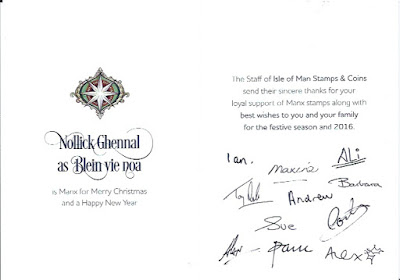 Nollick Ghennal
as Blein vie noa
is Manx for Merry Christmas
and a Happy New Year
The Staff of Isle of Man Stamps & Coins
send their sincere thanks for your
loyal support of Manx stamps along with
best wishes to you and your family
for the festive season and 2016.
Ian.
Maxine
ALi
Barbara
Andrew
Sue
Alex